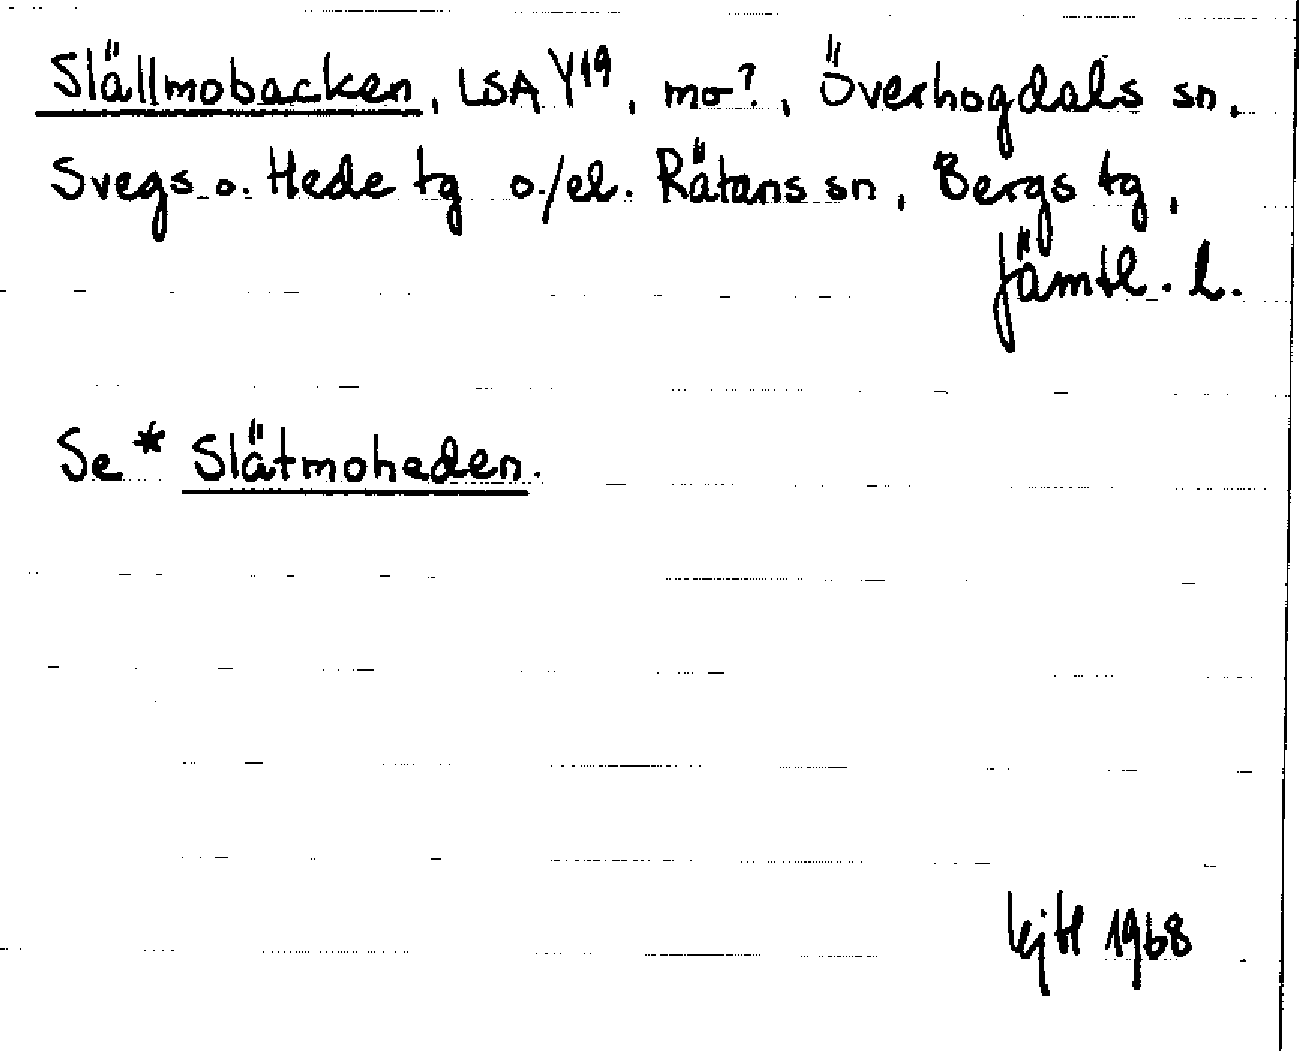 Slällmobacken, LSA Y19, mo?, Överhogdals sn.
Svegs o. Hede tg o./el. Rätans sn, Bergs tg,
Jämtl. l.
Se * Slätmoheden.
1968